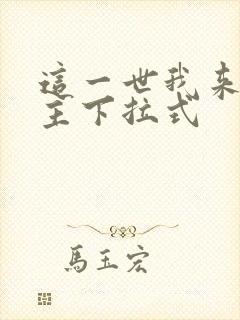 這一世我來
主下拉式
馬玉宏